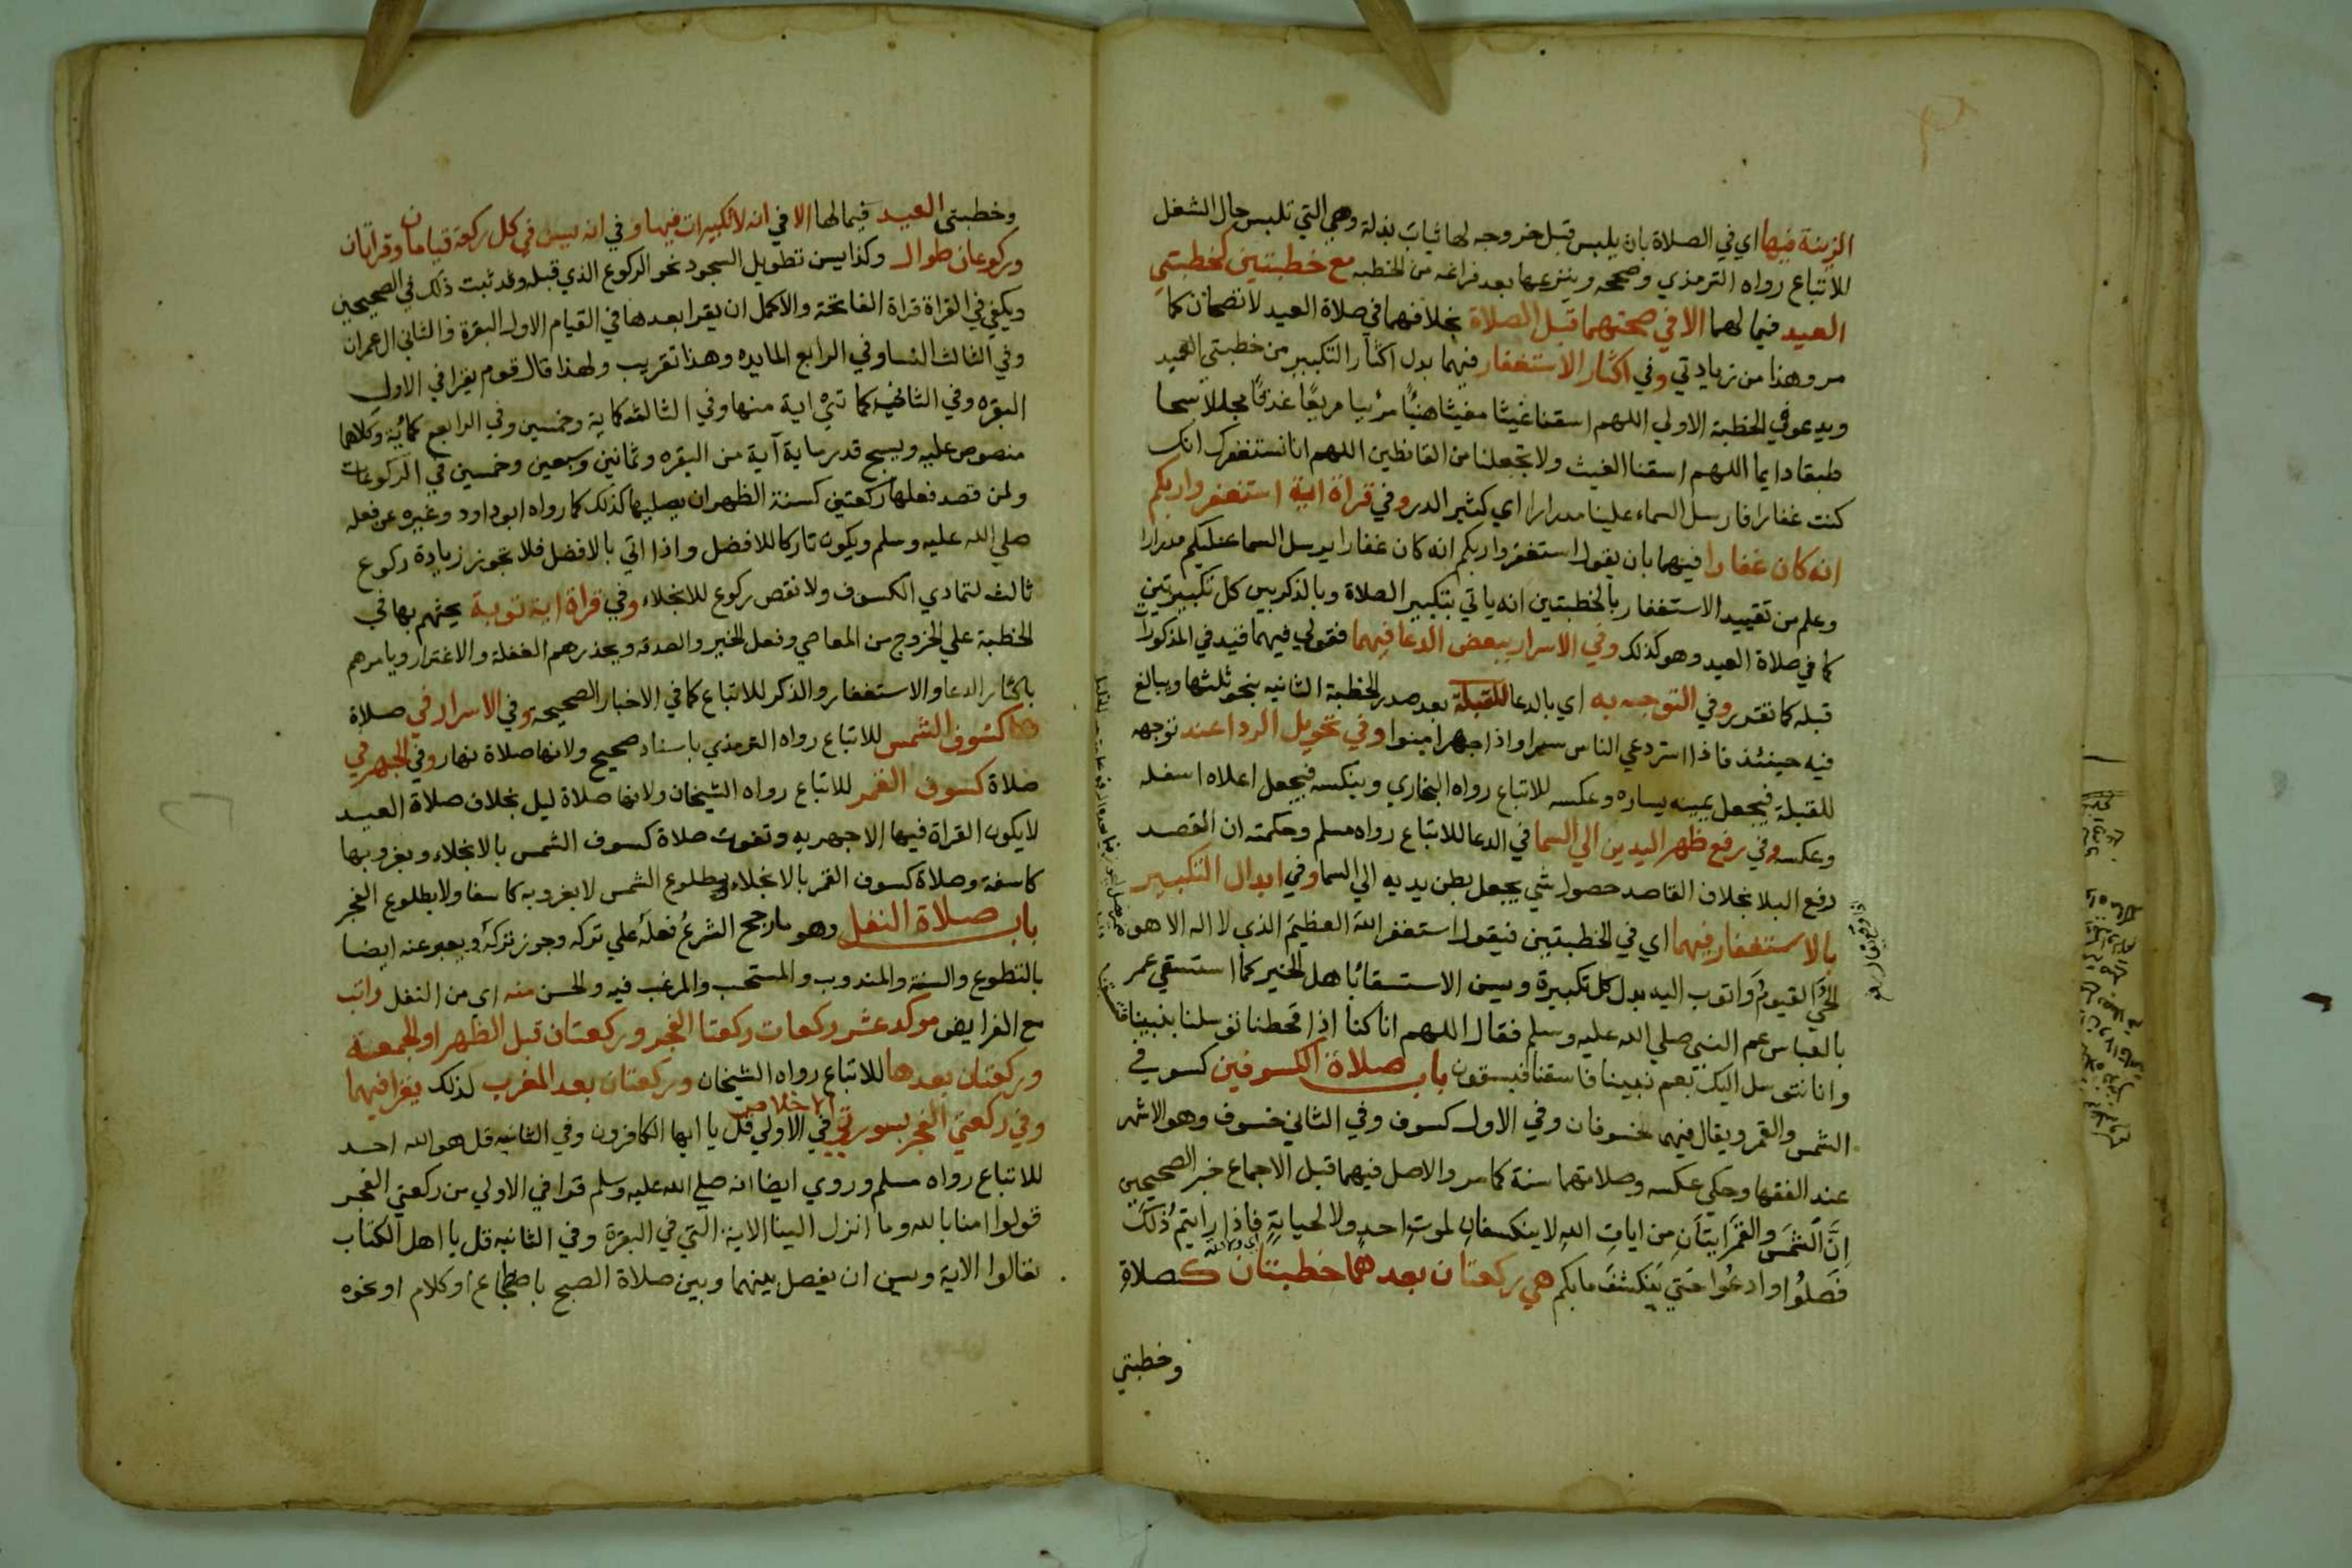 الزينة فيها اي في الصلاة بان يلبس قبل خروجه لها ثياب بذلة وهي التي تلبس حال الشغل
للاتباع رواه الترمذي وصححه وينزعها بعد فراغه من الخطبه مع خطبتين كخطبتي
العيد فيما لهما الا في صحتهما قبل الصلاة بخلافهما في صلاة العيد لا تصحان كما
مر وهذا من زيادتي وفي اكثار الاستغفار فيهما بدل اكثار التكبير من خطبتي العيد
ويدعو في الخطبة الاولي اللهم اسقنا غيثا مغيثا هنيًا مريا مريعًا غدقًا مجللا سحا
طبقا دايما اللهم اسقنا الغيث ولا تجعلنا من القانطين اللهم انا نستغفرك انك
كنت غفارا فارسل السماء علينا مدرارا اي كثير الدر وفي قراة اية استغفروا ربكم
انه كان غفارا فيهما بان يقول استغفروا ربكم انه كان غفارا يرسل السما عليكم مدرارا
وعلم من تقييد الاستغفار بالخطبتين انه ياتي بتكبير الصلاة وبالذكر بين كل تكبيرتين
كما في صلاة العيد وهو كذلك وفي الاسرار ببعض الدعا فيهما فقولي فيهما قيد في المذكورات
قبله كما تقرر وفي التوجه به اي بالدعا للقبلة بعد صدر الخطبة الثانيه بنحو ثلثها ويبالغ
فيه حينئذ فاذا اسر دعي الناس سرا واذا جهر امنوا وفي تحويل الردا عند توجهه
للقبلة فيجعل يمينه يساره وعكسه للاتباع رواه البخاري وينكسه فيجعل اعلاه اسفله
وعكسه وفي رفع ظهر اليدين الي السما في الدعا للاتباع رواه مسلم وحكمته ان القصد
رفع البلا بخلاف القاصد حصول شي يجعل بطن يديه الي السما وفي ابدال التكبير
بالاستغفار فيهما اي في الخطبتين فيقول استغفر الله العظيم الذي لا اله الا هو
الحي القيوم واتوب اليه بدل كل تكبيرة وسن الاستسقا باهل الخير كما استسقي عمر
بالعباس عم النبي صلي الله عليه وسلم فقال اللهم انا كنا اذا قحطنا توسلنا بنبينا
وانا نتوسل اليك بعم نبينا فاسقنا فيسقون باب صلاة الكسوفين كسوفي
الشمس والقمر ويقال فيهما خسوفان وفي الاول كسوف وفي الثاني خسوف وهو الاشهر
عند الفقها وحكي عكسه وصلاتهما سنة كما مر والاصل فيهما قبل الاجماع خبر الصحيحين
ان الشمس والقمر ايتان من ايات الله لا ينكسفان لموت احد ولا لحياته فاذا رايتم ذلك
فصلوا وادعوا حتي ينكشف ما بكم هي ركعتان بعدهما خطبتان كصلاة
وخطبتي
وخطبتي العيد فيما لها الا في انه لا تكبيرات فيها وفي انه يسن في كل ركعة قيامان وقراتان
وركوعان طوال وكذا يسن تطويل السجود نحو الركوع الذي قبله وقد ثبت ذلك في الصحيحين
ويكفي في القراة قراة الفاتحة والاكمل ان يقرا بعدها في القيام الاول البقرة والثاني ال عمران
وفي الثالث النسا وفي الرابع المايده وهذا تقريب ولهذا قال قوم يقرا في الاول
البقره وفي الثاني كمائتي اية منها وفي الثالث كماية وخمسين وفي الرابع كماية وكلاهما
منصوص عليه ويسبح قدر ماية آية من البقره وثمانين وسبعين وخمسين في الركوعات
ولمن قصد فعلها ركعتين كسنة الظهر ان يصليها كذلك كما رواه ابو داود وغيره عن فعله
صلي الله عليه وسلم ويكون تاركا للافضل واذا اتي بالافضل فلا تجوز زيادة ركوع
ثالث لتمادي الكسوف ولا نقص ركوع للانجلاء وفي قراة اية توبة يحثهم بها في
الخطبة علي الخروج من المعاصي وفعل الخير والصدقه ويحذرهم الغفلة والاغترار ويامرهم
باكثار الدعا والاستغفار والذكر للاتباع كما في الاخبار الصحيحه وفي الاسرار في صلاة
كسوف الشمس للاتباع رواه الترمذي باسناد صحيح ولانها صلاة نهار وفي الجهر في
صلاة كسوف القمر للاتباع رواه الشيخان ولانها صلاة ليل بخلاف صلاة العيد
لا يكون القراة فيها الا جهريه وتفوت صلاة كسوف الشمس بالانجلاء وبغروبها
كاسفة وصلاة كسوف القمر بالانجلاء وبطلوع الشمس لا بغروبه كاسفا ولا بطلوع الفجر
باب صلاة النفل وهو ما رجح الشرع فعله علي تركه وجوز تركه ويعبر عنه ايضا
بالتطوع والسنة والمندوب والمستحب والمرغب فيه والحسن منه اي من النفل راتب
مع الفرايض موكد عشر ركعات ركعتا الفجر وركعتان قبل الظهر او الجمعة
وركعتان بعدها للاتباع رواه الشيخان وركعتان بعد المغرب لذلك يقرا فيهما
وفي ركعتي الفجر بسورتي الاخلاص في الاولي قل يا ايها الكافرون وفي الثانيه قل هو الله احد
للاتباع رواه مسلم وروي ايضا انه صلي الله عليه وسلم قرا في الاولي من ركعتي الفجر
قولوا امنا بالله وما انزل الينا الاية التي في البقرة وفي الثانيه قل يا اهل الكتاب
تعالوا الاية ويسن ان يفصل بينهما وبين صلاة الصبح باضطجاع او كلام او نحوه